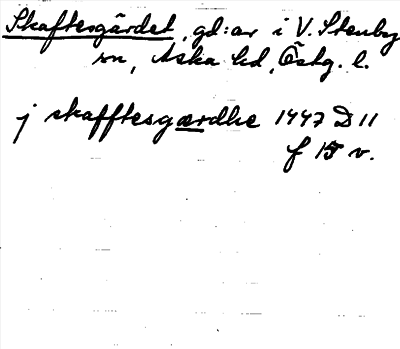 Skaftesgärdet, gd:ar i V. Stenby
sn, Aska hd, Östg. l.
j skafftesgærdhe 1447 D 11
f 15 v.